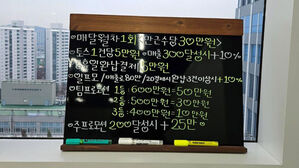 ※매달월차1회<만근수당30만원>
※토스1건당5만원 매출300달성시+10%
휴일완납결제5만원
※일프모/매출80만/20결제시완납3건이상시+10%
※팀프로모션 1등:600만원=50만원
2등:500만원=30만원
3등:400만원=10만원
※주프로모션200달성시+25만※